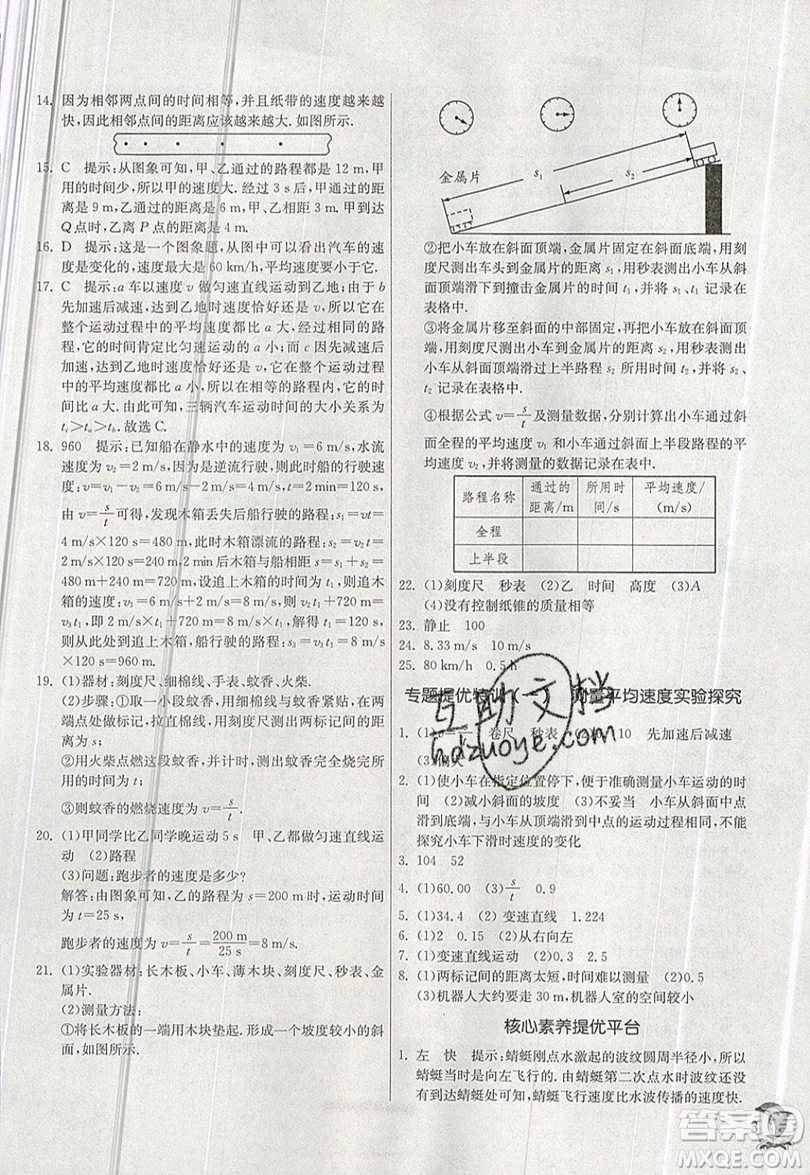 14. 因为相邻两点间的时间相等,并且纸带的速度越来越
快,因此相邻点间的距离应该越来越大. 如图所示.
15. C 提示:从图象可知,甲、乙通过的路程都是 12 m,甲
用的时间少,所以甲的速度大. 经过 3 s 后,甲通过的距
离是 9 m,乙通过的距离是 6 m,相距是 3 m. 甲到达终
点处,乙离 P 点的距离是 4 m.
16. D 提示:这是一个图象题,从图中可以看出汽车的速
度是变化的,速度最大是 60 km/h,平均速度要小于它.
17. C 提示:a 车以速度 v 做匀速直线运动到乙地;由于 b
先加速后减速,达到乙地时速度恰好还是 v,所以它在
整个运动过程中的平均速度比 a 大. 经过相同的路
程,它的时间肯定比匀速运动的小;c 是先减速后加速
达到乙地时速度恰好还是 v,所以它在整个运动过程
中的平均速度比 a 小,所以在路程相同的情况下,它的时间比
a 大. 由此可知,三辆汽车运动时间的大小关系为
tc>ta>tb. 故选 C.
18. 960 提示:已知船在静水中的速度为 v船=6 m/s,水流
速度为 v水=2 m/s,因为是逆流行驶,则此时船的行驶速度:
v=v船-v水=6 m/s-2 m/s=4 m/s.
由 v=s/t可得,发现木箱丢失后船行驶的路程:s1=vt=
4 m/s×120 s=480 m,此时木箱漂流的路程:s2=v水t=
2 m/s×120 s=240 m,此时船与木箱相距 s=s1+s2=
480 m+240 m=720 m;
设追上木箱的时间为 t1,则追赶
木箱的路程为:s3=6 m/s t1+2 m/s t1=2 m/s t1+720 m=
(v船+v水)t1=6 m/s t1+2 m/s t1,解得 t1=120 s;则
从此处到追上木箱,船行驶的路程:s3=(6 m/s+2 m/s)
×120 s=960 m.
19. (1)器材:蚊香、细棉线、手表、蚊香、火柴.
(2)步骤:①取一小段蚊香,用细棉线与蚊香紧贴,在两
端点处做标记,拉直棉线,用刻度尺测出两标记间的距
离为 s;
②用火柴点燃这段蚊香,并测出这段蚊香完全烧完所
用时间为 t;
③则蚊香的燃烧速度为 v=s/t.
20. (1)甲同学比乙同学晚运动 5 s 甲、乙都做匀速直线运
动 (2)路程
(3)问题:跑步者的速度是多少?
解答:由图象可知,乙的路程为 s=200 m 时,运动时间
为 t=25 s,
跑步者的速度为 v=s/t=200 m/25 s=8 m/s.
21. (1)实验器材:长木板、小车、薄木块、刻度尺、秒表、金
属片.
(2)测量方法:
①将长木板的一端用木块垫起. 形成一个坡度较小的斜
面,如图所示.
金属片 s1 s2
②把小车放在斜面顶端,金属片固定在斜面底端,用刻
度尺测出车头到金属片的距离 s1,用秒表测出小车从斜
面顶端滑下到撞击金属片的时间 t1,并将测量的数据
记录在表格中.
③将金属片移至斜面的中部固定,再把小车放在斜面
顶端,用刻度尺测出小车通过上半路程的距离 s2,s2、
t2 记录在表格中.
④根据公式 v=s/t及测量数据,分别计算出小车通过斜面
全程的平均速度 v1 和小车通过斜面上半段路程的平
均速度 v2,并将测量的数据记录在表中.
路程名称 通过的距离/m 所用时间/s 平均速度/(m/s)
全程
上半段
22. (1)刻度尺 秒表 (2)乙 时间 高度 (3)A
(4)没有控制纸锥的质量相等
23. 静止 100
24. 8.33 m/s 10 m/s
25. 80 km/h 0.5 h
专题提优特训 测量平均速度实验探究
1. (1)v=s/t 卷尺 秒表 10 先加速后减速
(3)偏大
2. (1)使小车在指定位置停下,便于准确测量小车运动的时
间 (2)减小斜面的坡度 (3)不妥当 小车从斜面中点
滑到底端的运动,与小车从顶端滑到中点的运动过程不同,不能
探究小车下滑时速度的变化
3. 104 52
4. (1)60.00 (3)s/t 0.9
5. (1)24.4(34.4) (2)变速直线 1.224
6. (1)2 0.15 (2)从右向左
7. (1)变速直线运动 (2)0.3 2.5
8. (1)两标记间的距离太短,时间难以测准 (2)0.5
(3)机器人大约要走 30 m,机器人室的空间较小
核心素养提优平台
1. 左 快 提示:蜻蜓刚点水激起的波纹圆周半径小,所以
蜻蜓当时是向左飞行的. 由图知蜻蜓第二次点水时波纹没
有到达蜻蜓处,所以蜻蜓飞行速度比水波传播的速度快.
互助文档
hdzuoye.com
3
答案圈
MXQE.COM